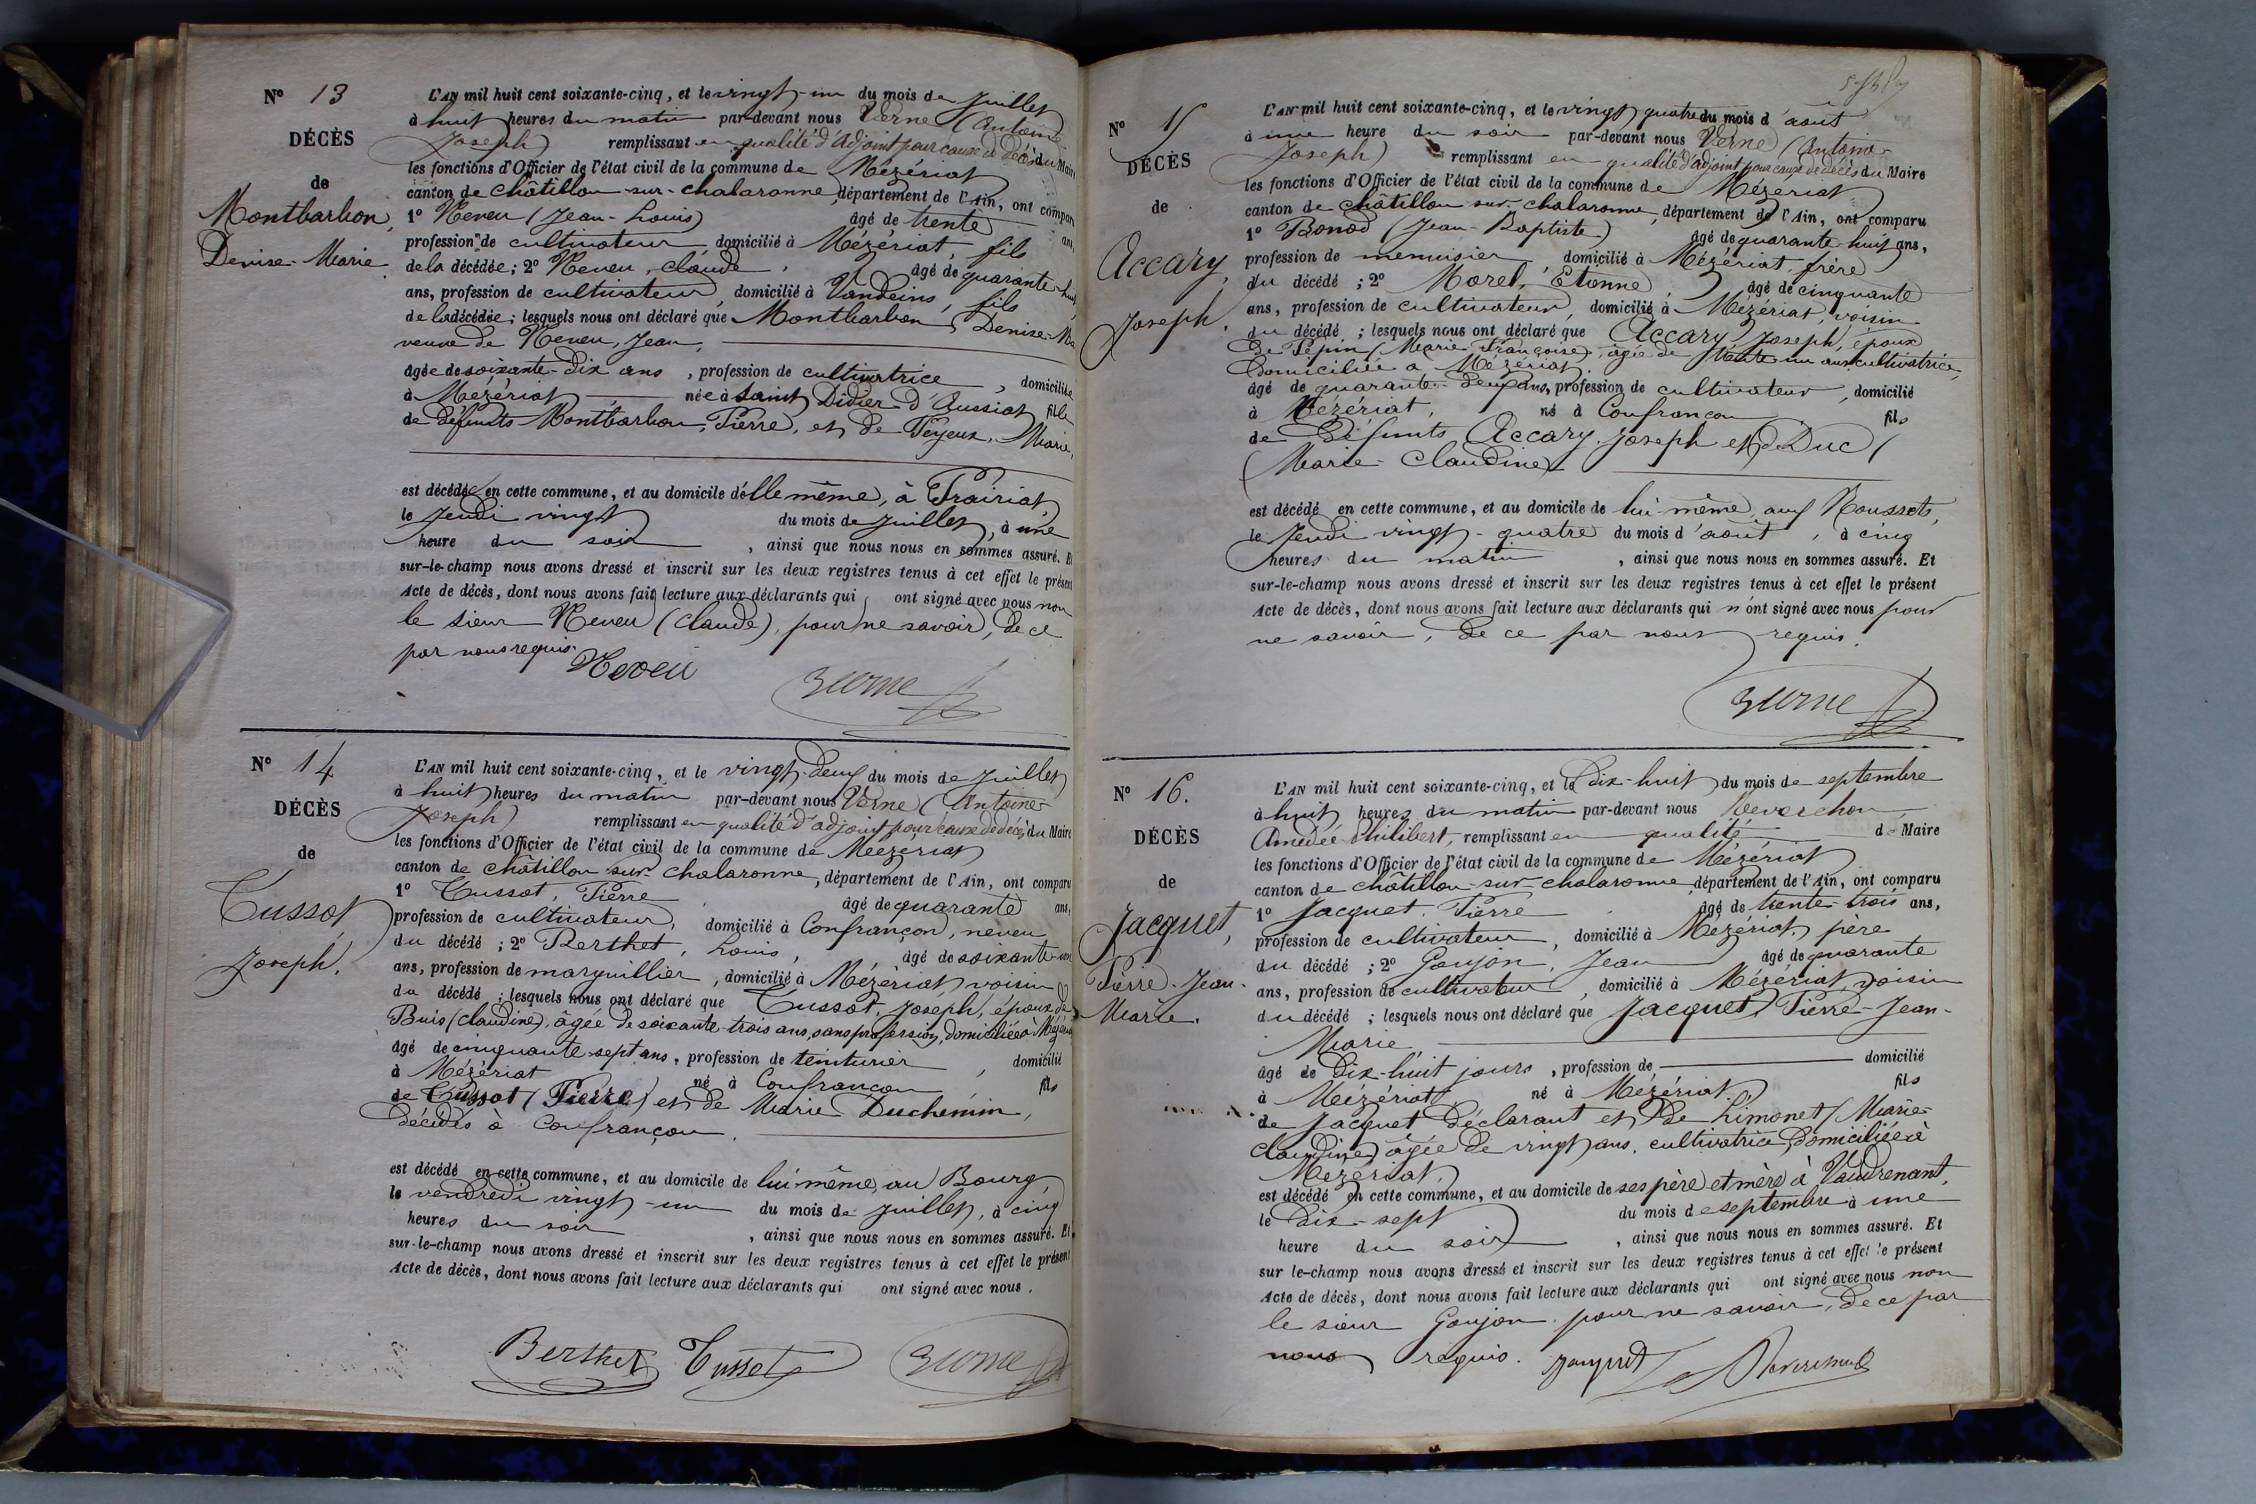 Nº 13
DÉCÈS
de
Montbarbon,
Denise-Marie
L'AN mil huit cent soixante-cinq, et le vingt-un du mois de juillet
à huit heures du matin par-devant nous Verne (Antoine
Joseph) remplissant en qualité d'adjoint pour cause de décès du Maire
les fonctions d'Officier de l'état civil de la commune de Mézériat
canton de Châtillon-sur-Chalaronne, département de l'Ain, ont comparu
1º Neveu (Jean-Louis) âgé de trente ans,
profession de cultivateur, domicilié à Mézériat, fils
de la décédée; 2º Neveu, Claude, âgé de quarante-huit
ans, profession de cultivateur, domicilié à Vandeins, fils
de la décédée; lesquels nous ont déclaré que Montbarbon, Denise-Ma
veuve de Neveu, Jean,
âgée de soixante-dix ans, profession de cultivatrice, domiciliée
à Mézériat née à Saint Didier d'Aussiat fille
de défunts Montbarbon, Pierre, et de Peyeux, Marie,
est décédée en cette commune, et au domicile d'elle même, à Prairiat,
le jeudi vingt du mois de juillet, à une
heure du soir, ainsi que nous nous en sommes assuré. Et
sur-le-champ nous avons dressé et inscrit sur les deux registres tenus à cet effet le présent
Acte de décès, dont nous avons fait lecture aux déclarants qui ont signé avec nous non
le sieur Neveu (Claude), pour ne savoir, de ce
par nous requis.
Neveu Verne
Nº 14
DÉCÈS
de
Tussot,
Joseph.
L'AN mil huit cent soixante-cinq, et le vingt-deux du mois de juillet
à huit heures du matin par-devant nous Verne (Antoine
Joseph) remplissant en qualité d'adjoint pour cause de décès du Maire
les fonctions d'Officier de l'état civil de la commune de Mézériat
canton de Châtillon-sur-Chalaronne, département de l'Ain, ont comparu
1º Tussot, Pierre âgé de quarante ans,
profession de cultivateur, domicilié à Confrançon, neveu
du décédé; 2º Berthet, Louis, âgé de soixante-un
ans, profession de marguillier, domicilié à Mézériat, voisin
du décédé; lesquels nous ont déclaré que Tussot, Joseph, époux de
Buis (Claudine), âgée de soixante-trois ans, sans profession, domiciliée à Mézériat
âgé de cinquante-sept ans, profession de teinturier, domicilié
à Mézériat né à Confrançon fils
de Tussot (Pierre) et de Marie Duchemin,
décédés à Confrançon.
est décédé en cette commune, et au domicile de lui-même, au Bourg,
le vendredi vingt-un du mois de juillet, à cinq
heures du soir, ainsi que nous nous en sommes assuré. Et
sur-le-champ nous avons dressé et inscrit sur les deux registres tenus à cet effet le présent
Acte de décès, dont nous avons fait lecture aux déclarants qui ont signé avec nous.
Berthet Tussot Verne
Nº 15
DÉCÈS
de
Accary,
Joseph.
L'AN mil huit cent soixante-cinq, et le vingt quatre du mois d'août
à une heure du soir par-devant nous Verne (Antoine-
Joseph) remplissant en qualité d'adjoint pour cause de décès du Maire
les fonctions d'Officier de l'état civil de la commune de Mézériat
canton de Châtillon-sur-Chalaronne, département de l'Ain, ont comparu
1º Bonod (Jean-Baptiste) âgé de quarante-huit ans,
profession de menuisier, domicilié à Mézériat, frère
du décédé; 2º Morel, Etienne, âgé de cinquante
ans, profession de cultivateur, domicilié à Mézériat, voisin
du décédé; lesquels nous ont déclaré que Accary, Joseph, époux
de Pépin (Marie Françoise), âgée de trente-un ans, cultivatrice,
domiciliée à Mézériat.
âgé de quarante-deux ans, profession de cultivateur, domicilié
à Mézériat, né à Confrançon fils
de défunts Accary, Joseph et de Duc
(Marie-Claudine)
est décédé en cette commune, et au domicile de lui-même, aux Roussets,
le jeudi vingt-quatre du mois d'août, à cinq
heures du matin, ainsi que nous nous en sommes assuré. Et
sur-le-champ nous avons dressé et inscrit sur les deux registres tenus à cet effet le présent
Acte de décès, dont nous avons fait lecture aux déclarants qui n'ont signé avec nous pour
ne savoir, de ce par nous requis.
Verne
Nº 16.
DÉCÈS
de
Jacquet,
Pierre-Jean-
Marie.
L'AN mil huit cent soixante-cinq, et le dix-huit du mois de septembre
à huit heures du matin par-devant nous
Amédée Philibert, remplissant en qualité de Maire
les fonctions d'Officier de l'état civil de la commune de Mézériat
canton de Châtillon-sur-Chalaronne, département de l'Ain, ont comparu
1º Jacquet, Pierre âgé de trente-trois ans,
profession de cultivateur, domicilié à Mézériat, père
du décédé; 2º Goujon, Jean âgé de quarante
ans, profession de cultivateur, domicilié à Mézériat, voisin
du décédé; lesquels nous ont déclaré que Jacquet, Pierre-Jean-
Marie
âgé de dix-huit jours, profession de domicilié
à Mézériat, né à Mézériat, fils
de Jacquet déclarant et de Limonet (Marie-
Claudine) âgée de vingt ans, cultivatrice, domiciliée à
Mézériat,
est décédé en cette commune, et au domicile de ses père et mère à Vaudrenant,
le dix-sept du mois de septembre à une
heure du soir, ainsi que nous nous en sommes assuré. Et
sur-le-champ nous avons dressé et inscrit sur les deux registres tenus à cet effet le présent
Acte de décès, dont nous avons fait lecture aux déclarants qui ont signé avec nous non
le sieur Goujon pour ne savoir, de ce par
nous requis. Jacquet